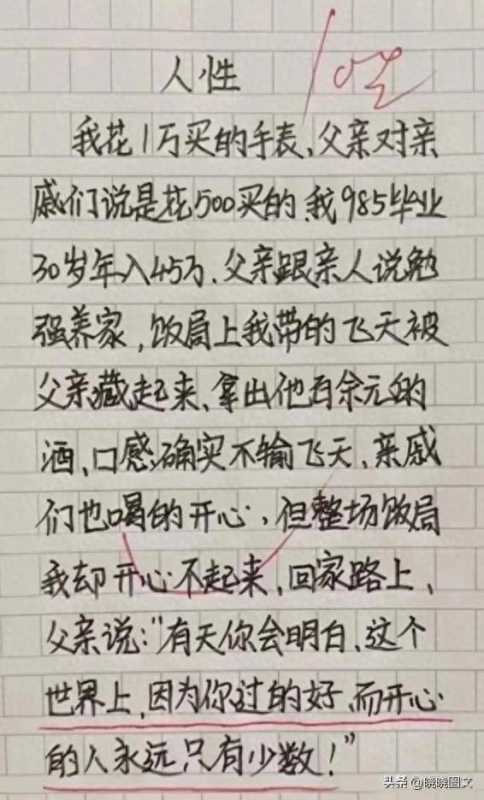 人性
我花1万买的手表、父亲对亲
戚们说是花500买的 我985毕业
30岁年入45万、父亲跟亲人说勉
强养家，饭局上我带的飞天被
父亲藏起来、拿出他百余元的
酒、口感确实不输飞天、亲戚
们也喝的开心，但整场饭局
我却开心不起来，回家路上、
父亲说：“有天你会明白、这个
世界上，因为你过的好、而开心
的人永远只有少数！”
头条 @晓晓图文